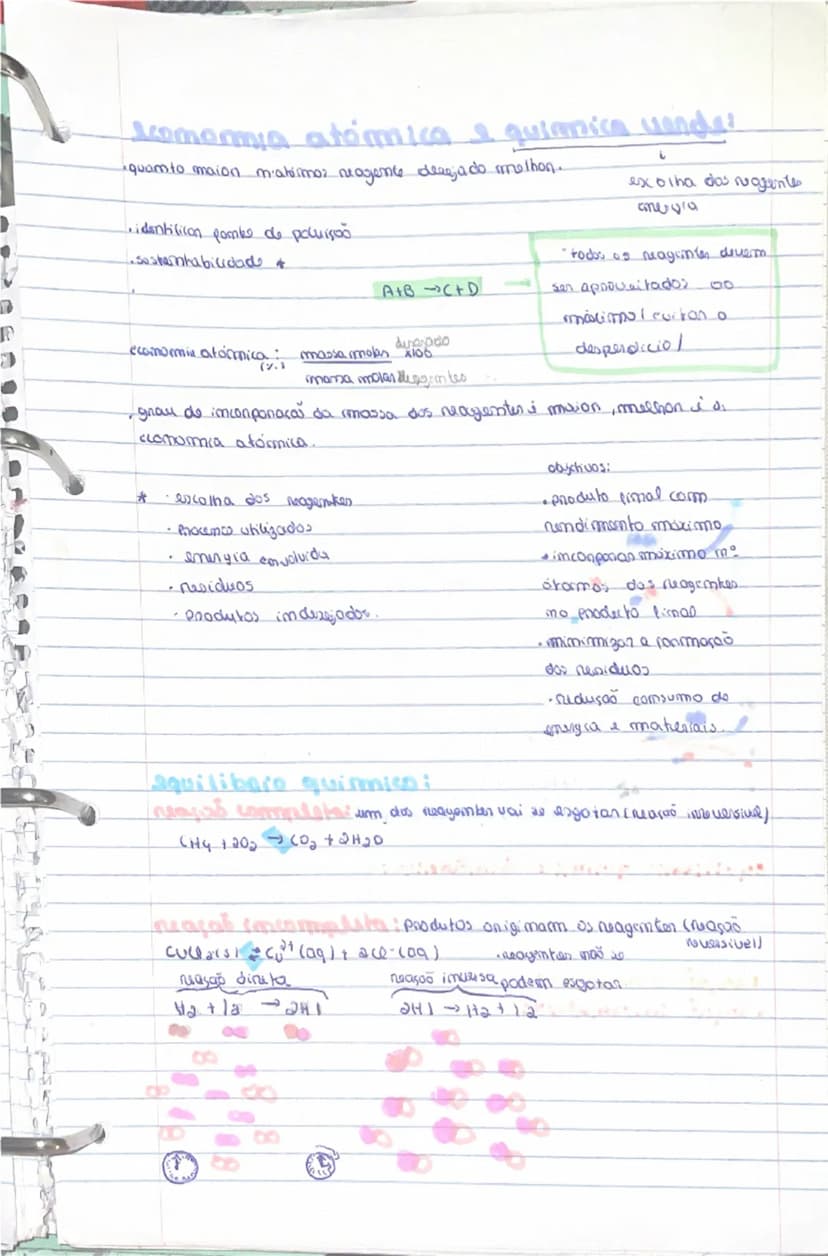 economia atómica e química verde:
• quanto maior m.atómos reagente desejado melhor.
↓
escolha dos reagentes
energia
• identificar pombo de poluição
• sustentabilidade *
A+B → C+D
"todos os reagentes devem
ser aproveitados ao
máximo/evitar o
desperdício/
economia atómica: massa molar desejado x100
(%) massa molar reagentes
• grau de incorporação da massa dos reagentes é maior, melhor é a
economia atómica.
* • escolha dos reagentes
• Processo utilizados
• energia envolvida
• residuos
• Produtos indesejados.
objetivos:
• produto final com
rendimento máximo
• incorporar máximo nº
átomos dos reagentes
no producto final
• minimizar a formação
dos residuos
• redução consumo de
energia e materiais.
equilibrio químico:
reação completa: um dos reagentes vai se esgotar (reação irreversivel)
CH4 + 2O2 → CO2 + 2H2O
reação incompleta: Produtos originam os reagentes (reação
reversivel)
CuCl2(s) ⇄ Cu²⁺(aq) + 2Cl⁻(aq) • reagentes não se
podem esgotar.
reação direta
H2 + I2 → 2HI
reação inversa
2HI → H2 + I2